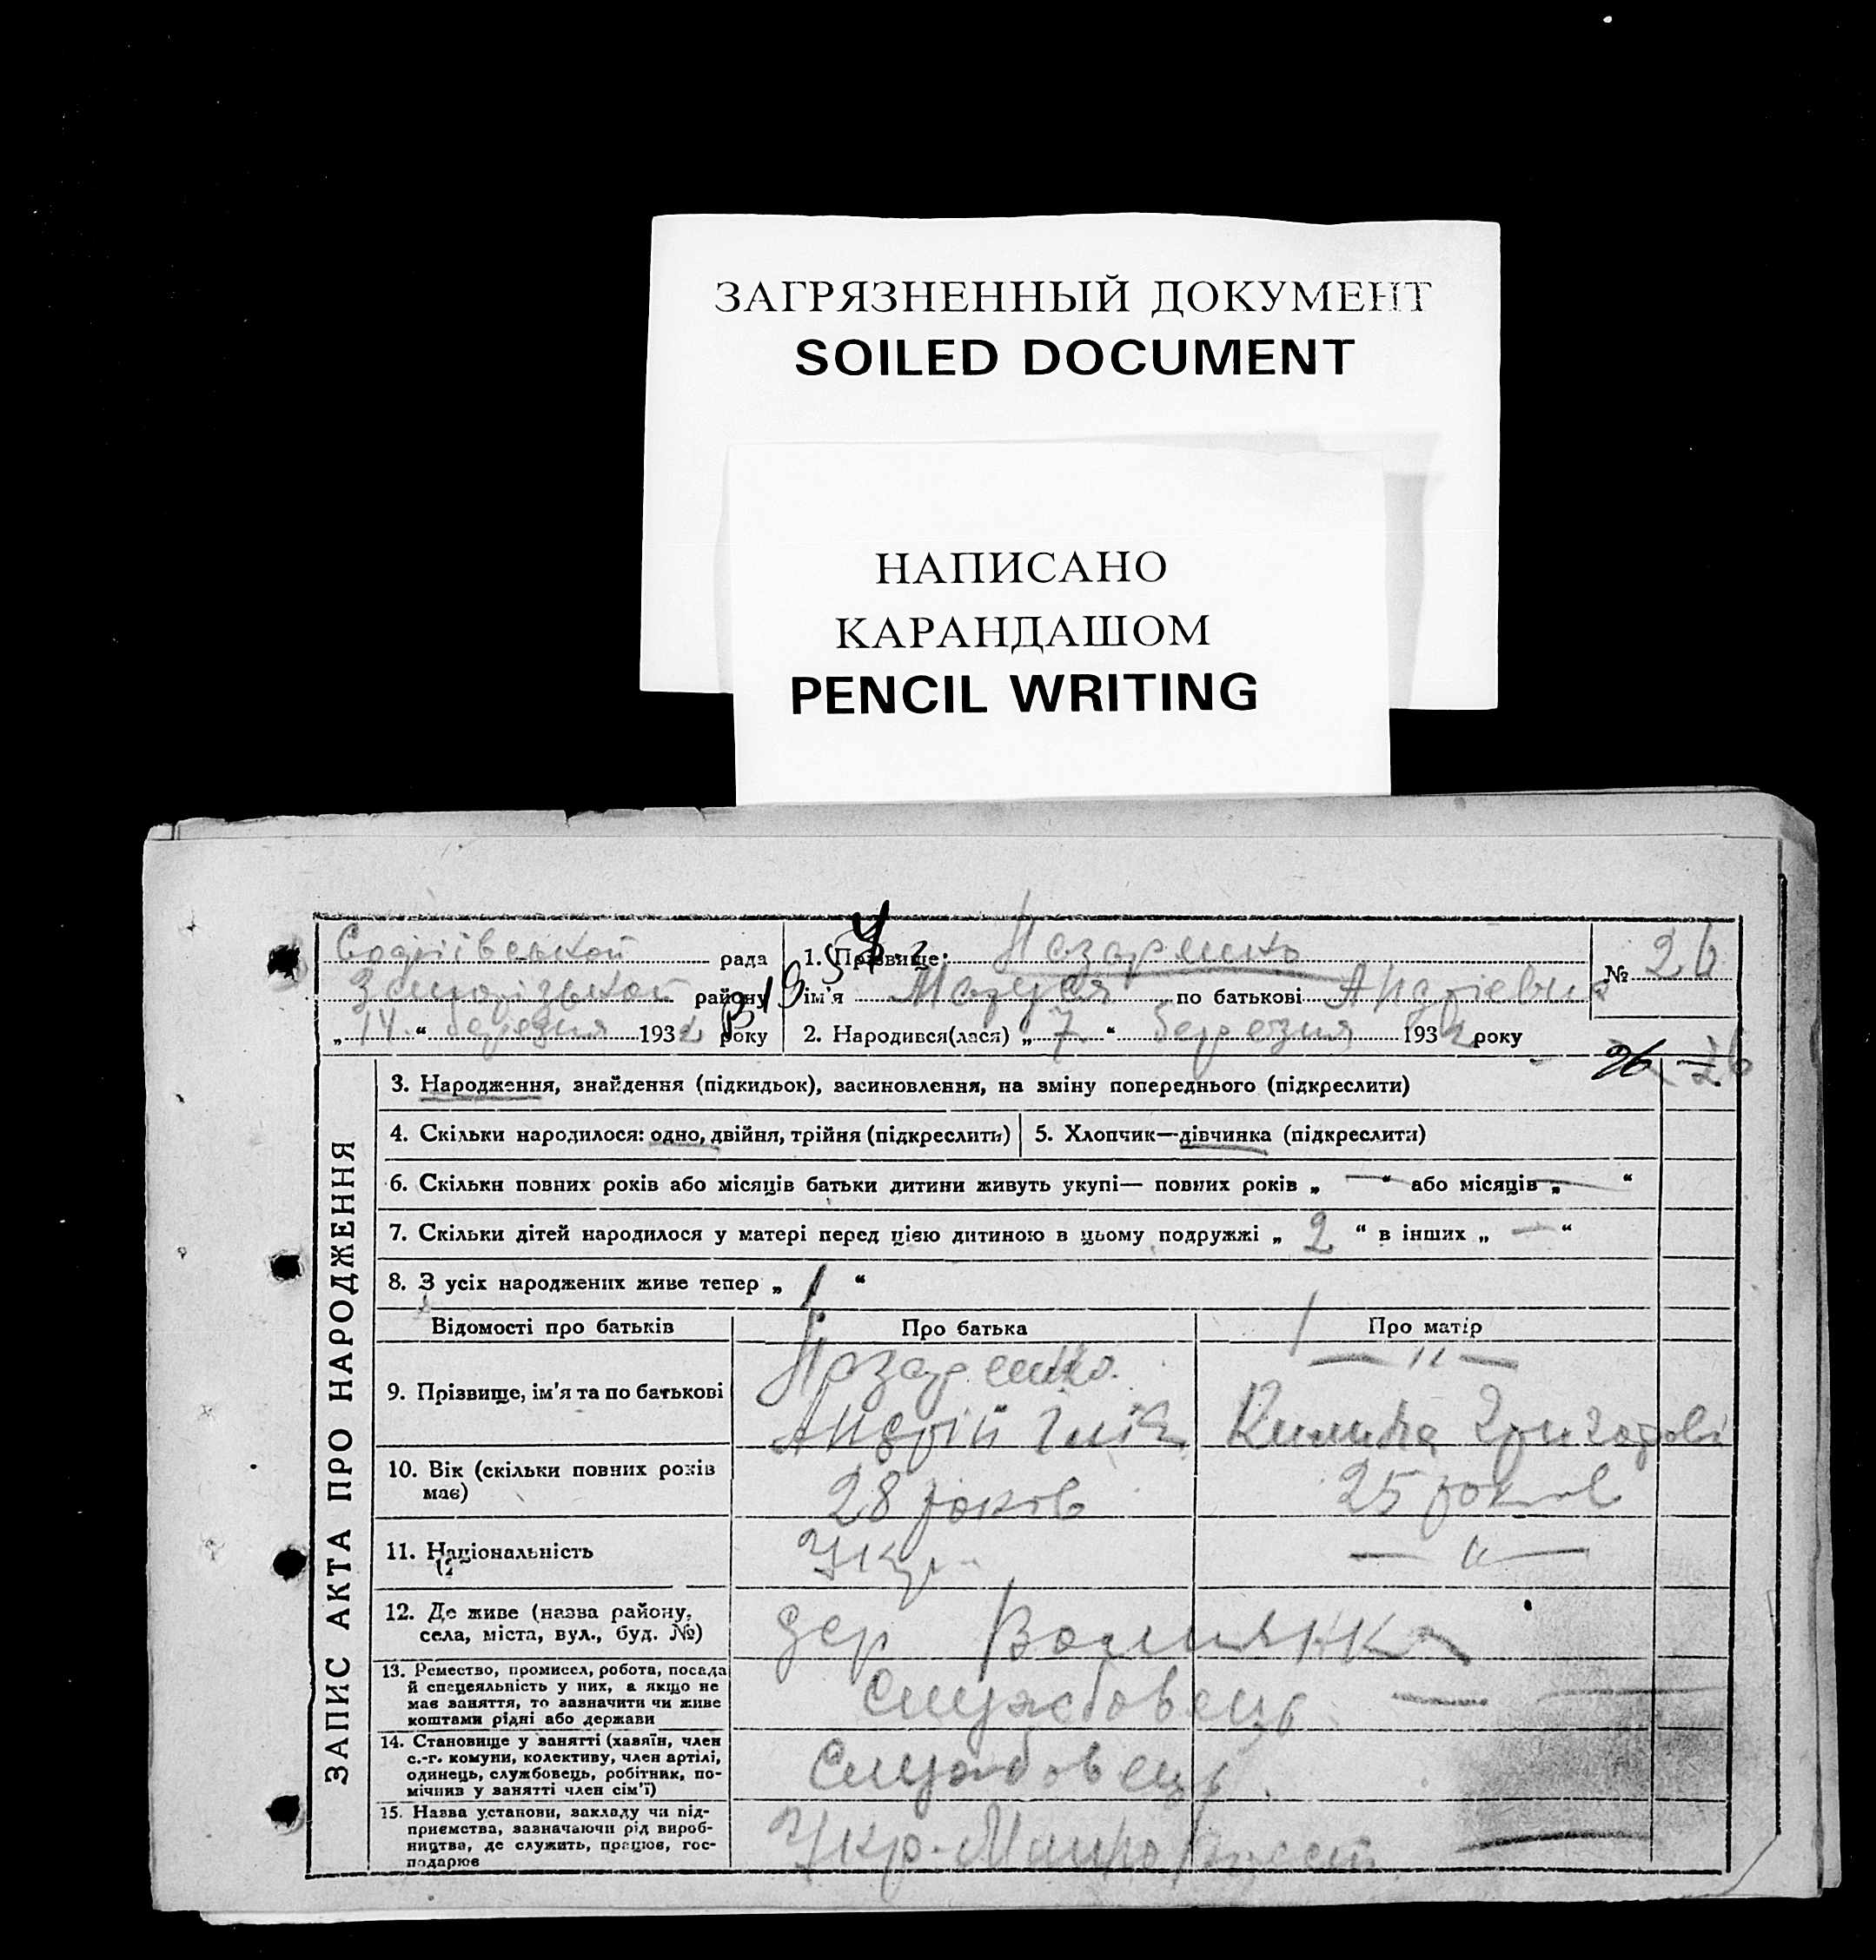 ЗАГРЯЗНЕННЫЙ ДОКУМЕНТ
SOILED DOCUMENT
НАПИСАНО
КАРАНДАШОМ
PENCIL WRITING
ЗАПИС АКТА ПРО НАРОДЖЕННЯ
рада
району
„ 14 “ березня 1932 року
1. Прізвище: Назаренко
ім'я Маруся по батькові Андрієвна
2. Народився(лася) „ 7 “ березня 1932 року
№ 26
26
3. Народження, знайдення (підкидьок), засиновлення, на зміну попереднього (підкреслити)
4. Скільки народилося: одно, двійня, трійня (підкреслити)
5. Хлопчик—дівчинка (підкреслити)
6. Скільки повних років або місяців батьки дитини живуть укупі— повних років „ — “ або місяців „ — “
7. Скільки дітей народилося у матері перед цією дитиною в цьому подружжі „ 2 “ в інших „ — “
8. З усіх народжених живе тепер „ 1 “
Відомості про батьків
Про батька
Про матір
9. Прізвище, ім'я та по батькові
Назаренко
Андрій
— " —
10. Вік (скільки повних років
має)
28 років
25 років
11. Національність
Укр.
— " —
12. Де живе (назва району,
села, міста, вул., буд. №)
13. Ремество, промисел, робота, посада
й спецеяльність у них, а якщо не
має заняття, то зазначити чи живе
коштами рідні або держави
Службовець —
14. Становище у занятті (хазяїн, член
с.-г. комуни, колективу, член артілі,
одинець, службовець, робітник, по-
мічнив у занятті член сім'ї)
Службовець
15. Назва установи, закладу чи під-
приємства, зазначаючи рід вироб-
ництва, де служить, працює, гос-
подарює